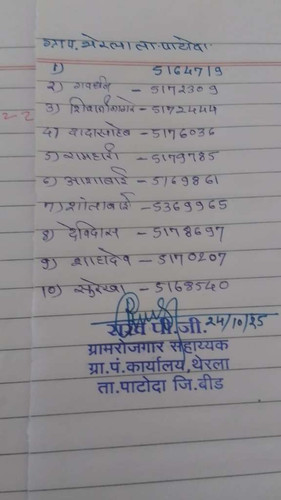 ग्रा.प. थेरला ता. पाटोदा
1) 5164719
२) गवळण - 5172309
३) शिवाजीनागरे - 5172444
४) दादासाहेब - 5176036
5) रामहारी - 5179785
६) आशाबाई - 5169861
7) शीलाबाई - 5369965
8) देविदास - 5178697
9) शहादेव - 5170207
10) सुरेखा - 5168540
24/10/25
पी.जी.
ग्रामरोजगार सहाय्यक
ग्रा.पं.कार्यालय, थेरला
ता.पाटोदा जि.बीड